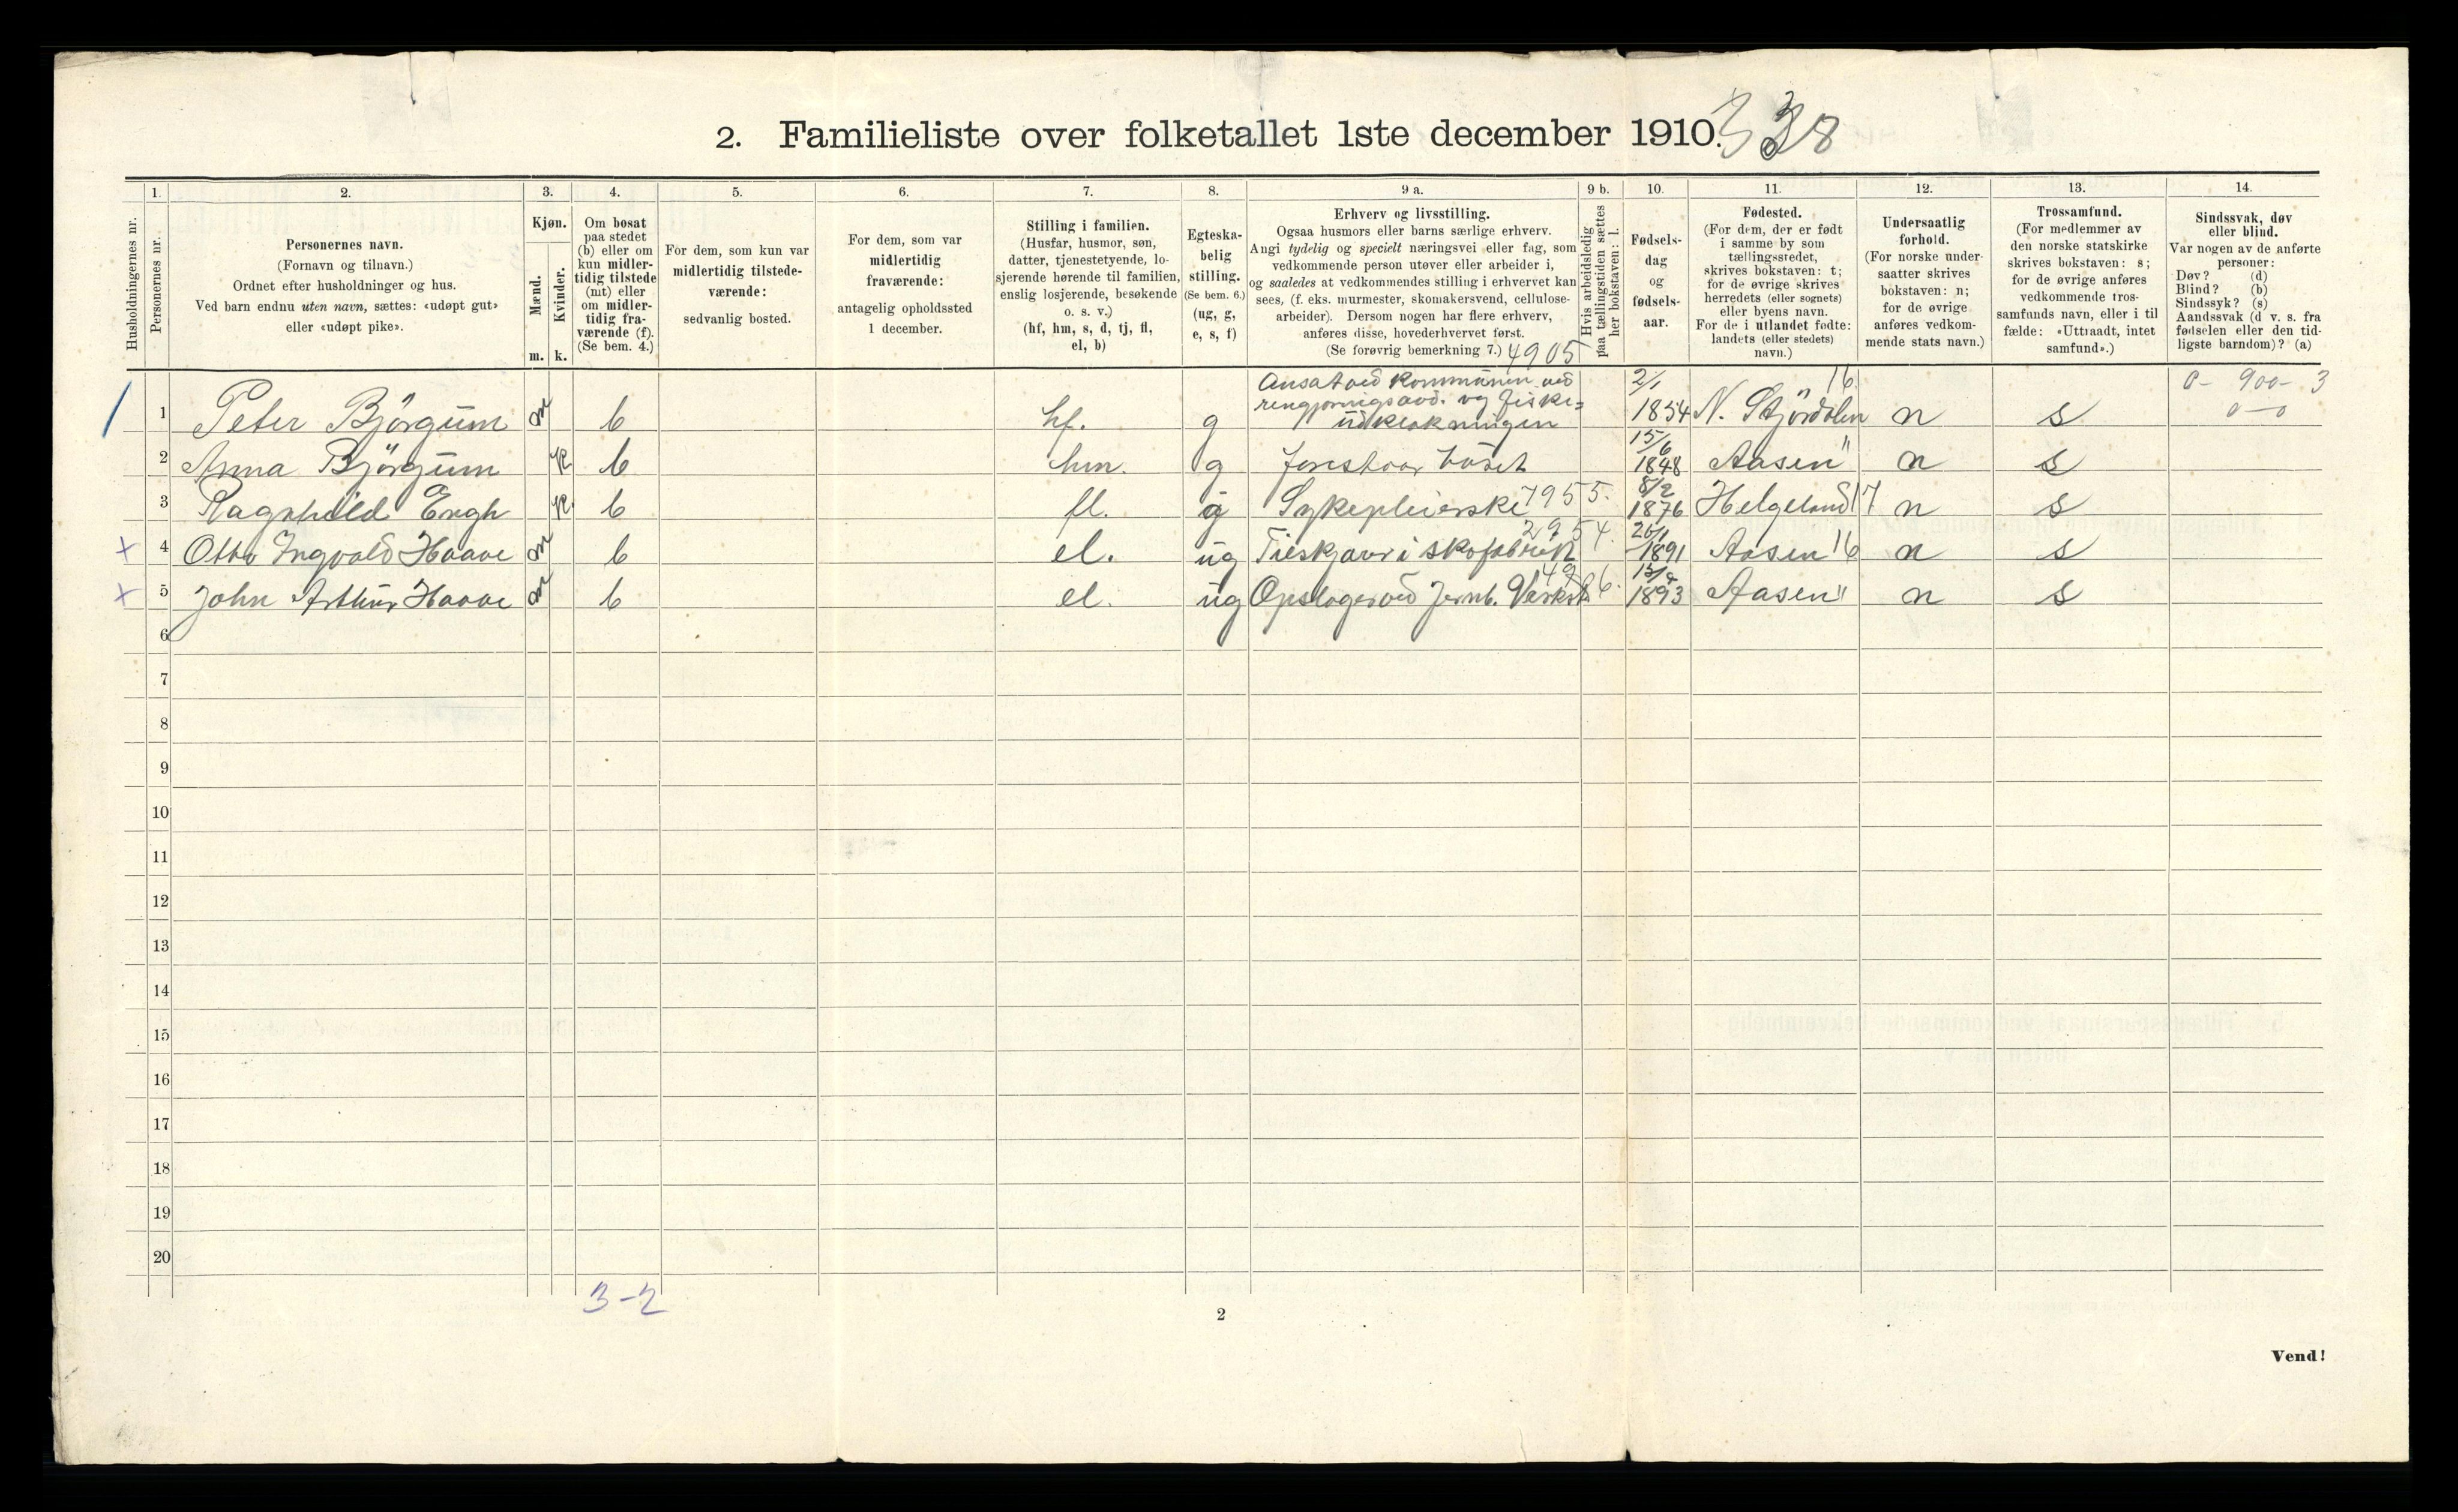 2. Familieliste over folketallet 1ste december 1910. 338
1. 2. 3. 4. 5. 6. 7. 8. 9 a. 9 b. 10. 11. 12. 13. 14.
Husholdningernes nr.
Personernes nr.
Personernes navn.
(Fornavn og tilnavn.)
Ordnet efter husholdninger og hus.
Ved barn endnu uten navn, sættes: «udøpt gut»
eller «udøpt pike».
Kjøn.
Mænd.
Kvinder.
m. k.
Om bosat
paa stedet
(b) eller om
kun midler-
tidig tilstede
(mt) eller
om midler-
tidig fra-
værende (f).
(Se bem. 4.)
For dem, som kun var
midlertidig tilstede-
værende:
sedvanlig bosted.
For dem, som var
midlertidig
fraværende:
antagelig opholdssted
1 december.
Stilling i familien.
(Husfar, husmor, søn,
datter, tjenestetyende, lo-
sjerende hørende til familien,
enslig losjerende, besøkende
o. s. v.)
(hf, hm, s, d, tj, fl,
el, b)
Egteska-
belig
stilling.
(Se bem. 6.)
(ug, g,
e, s, f)
Erhverv og livsstilling.
Ogsaa husmors eller barns særlige erhverv.
Angi tydelig og specielt næringsvei eller fag, som
vedkommende person utøver eller arbeider i,
og saaledes at vedkommendes stilling i erhvervet kan
sees, (f. eks. murmester, skomakersvend, cellulose-
arbeider). Dersom nogen har flere erhverv,
anføres disse, hovederhvervet først.
(Se forøvrig bemerkning 7.) 4905
Hvis arbeidsledig
paa tællingstiden sættes
her bokstaven: l.
Fødsels-
dag
og
fødsels-
aar.
Fødested.
(For dem, der er født
i samme by som
tællingsstedet,
skrives bokstaven: t;
for de øvrige skrives
herredets (eller sognets)
eller byens navn.
For de i utlandet fødte:
landets (eller stedets)
navn.)
Undersaatlig
forhold.
(For norske under-
saatter skrives
bokstaven: n;
for de øvrige
anføres vedkom-
mende stats navn.)
Trossamfund.
(For medlemmer av
den norske statskirke
skrives bokstaven: s;
for de øvrige anføres
vedkommende tros-
samfunds navn, eller i til
fælde: «Uttraadt, intet
samfund».)
Sindssvak, døv
eller blind.
Var nogen av de anførte
personer:
Døv? (d)
Blind? (b)
Sindssyk? (s)
Aandssvak (d v. s. fra
fødselen eller den tid-
ligste barndom)? (a)
Ansat ved kommunen ved 2/1 16 0- 900- 3
rengjørningsavd. og fiske=
1 Peter Björgum m b hf. g udklækningen 1854 N. Stjördalen n s 0-0
15/6
2 Anna Björgum k b hm. g forestaar huset 1848 Aasen " n s
8/2
3 Ragnhild Engh k b fl. g Sykepleierske 7955. 1876 Helgeland 17 n s
2954. 20/1
x 4 Otto Ingvald Haave m b el. ug Tilskjærer i skofabrik 1891 Aasen 16 n s
4926. 15/9
x 5 John Arthur Haave m b el. ug Opslager ved Jernb. Verkst. 1893 Aasen " n s
6
7
8
9
10
11
12
13
14
15
16
17
18
19
20
3-2
2
Vend!